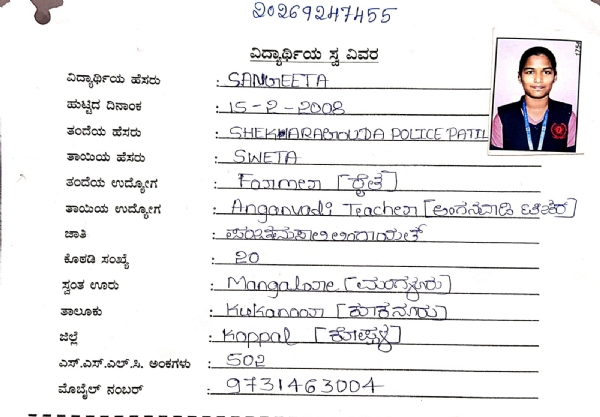 20269247455
ವಿದ್ಯಾರ್ಥಿಯ ಸ್ವ ವಿವರ
ವಿದ್ಯಾರ್ಥಿಯ ಹೆಸರು : SANGEETA
ಹುಟ್ಟಿದ ದಿನಾಂಕ : 15-2-2008
ತಂದೆಯ ಹೆಸರು : SHEKHARAGOUDA POLICE PATIL
ತಾಯಿಯ ಹೆಸರು : SWETA
ತಂದೆಯ ಉದ್ಯೋಗ : Farmer [ರೈತ]
ತಾಯಿಯ ಉದ್ಯೋಗ : Anganvadi Teacher [ಅಂಗನವಾಡಿ ಟೀಚರ]
ಜಾತಿ :
ಕೊಠಡಿ ಸಂಖ್ಯೆ : 20
ಸ್ವಂತ ಊರು : Mangalore [ಮಂಗಳೂರು]
ತಾಲೂಕು : Kukanoor [ಕೂಕನೂರು]
ಜಿಲ್ಲೆ : Koppal [ಕೊಪ್ಪಳ]
ಎಸ್.ಎಸ್.ಎಲ್.ಸಿ. ಅಂಕಗಳು : 502
ಮೊಬೈಲ್ ನಂಬರ್ : 9731463004